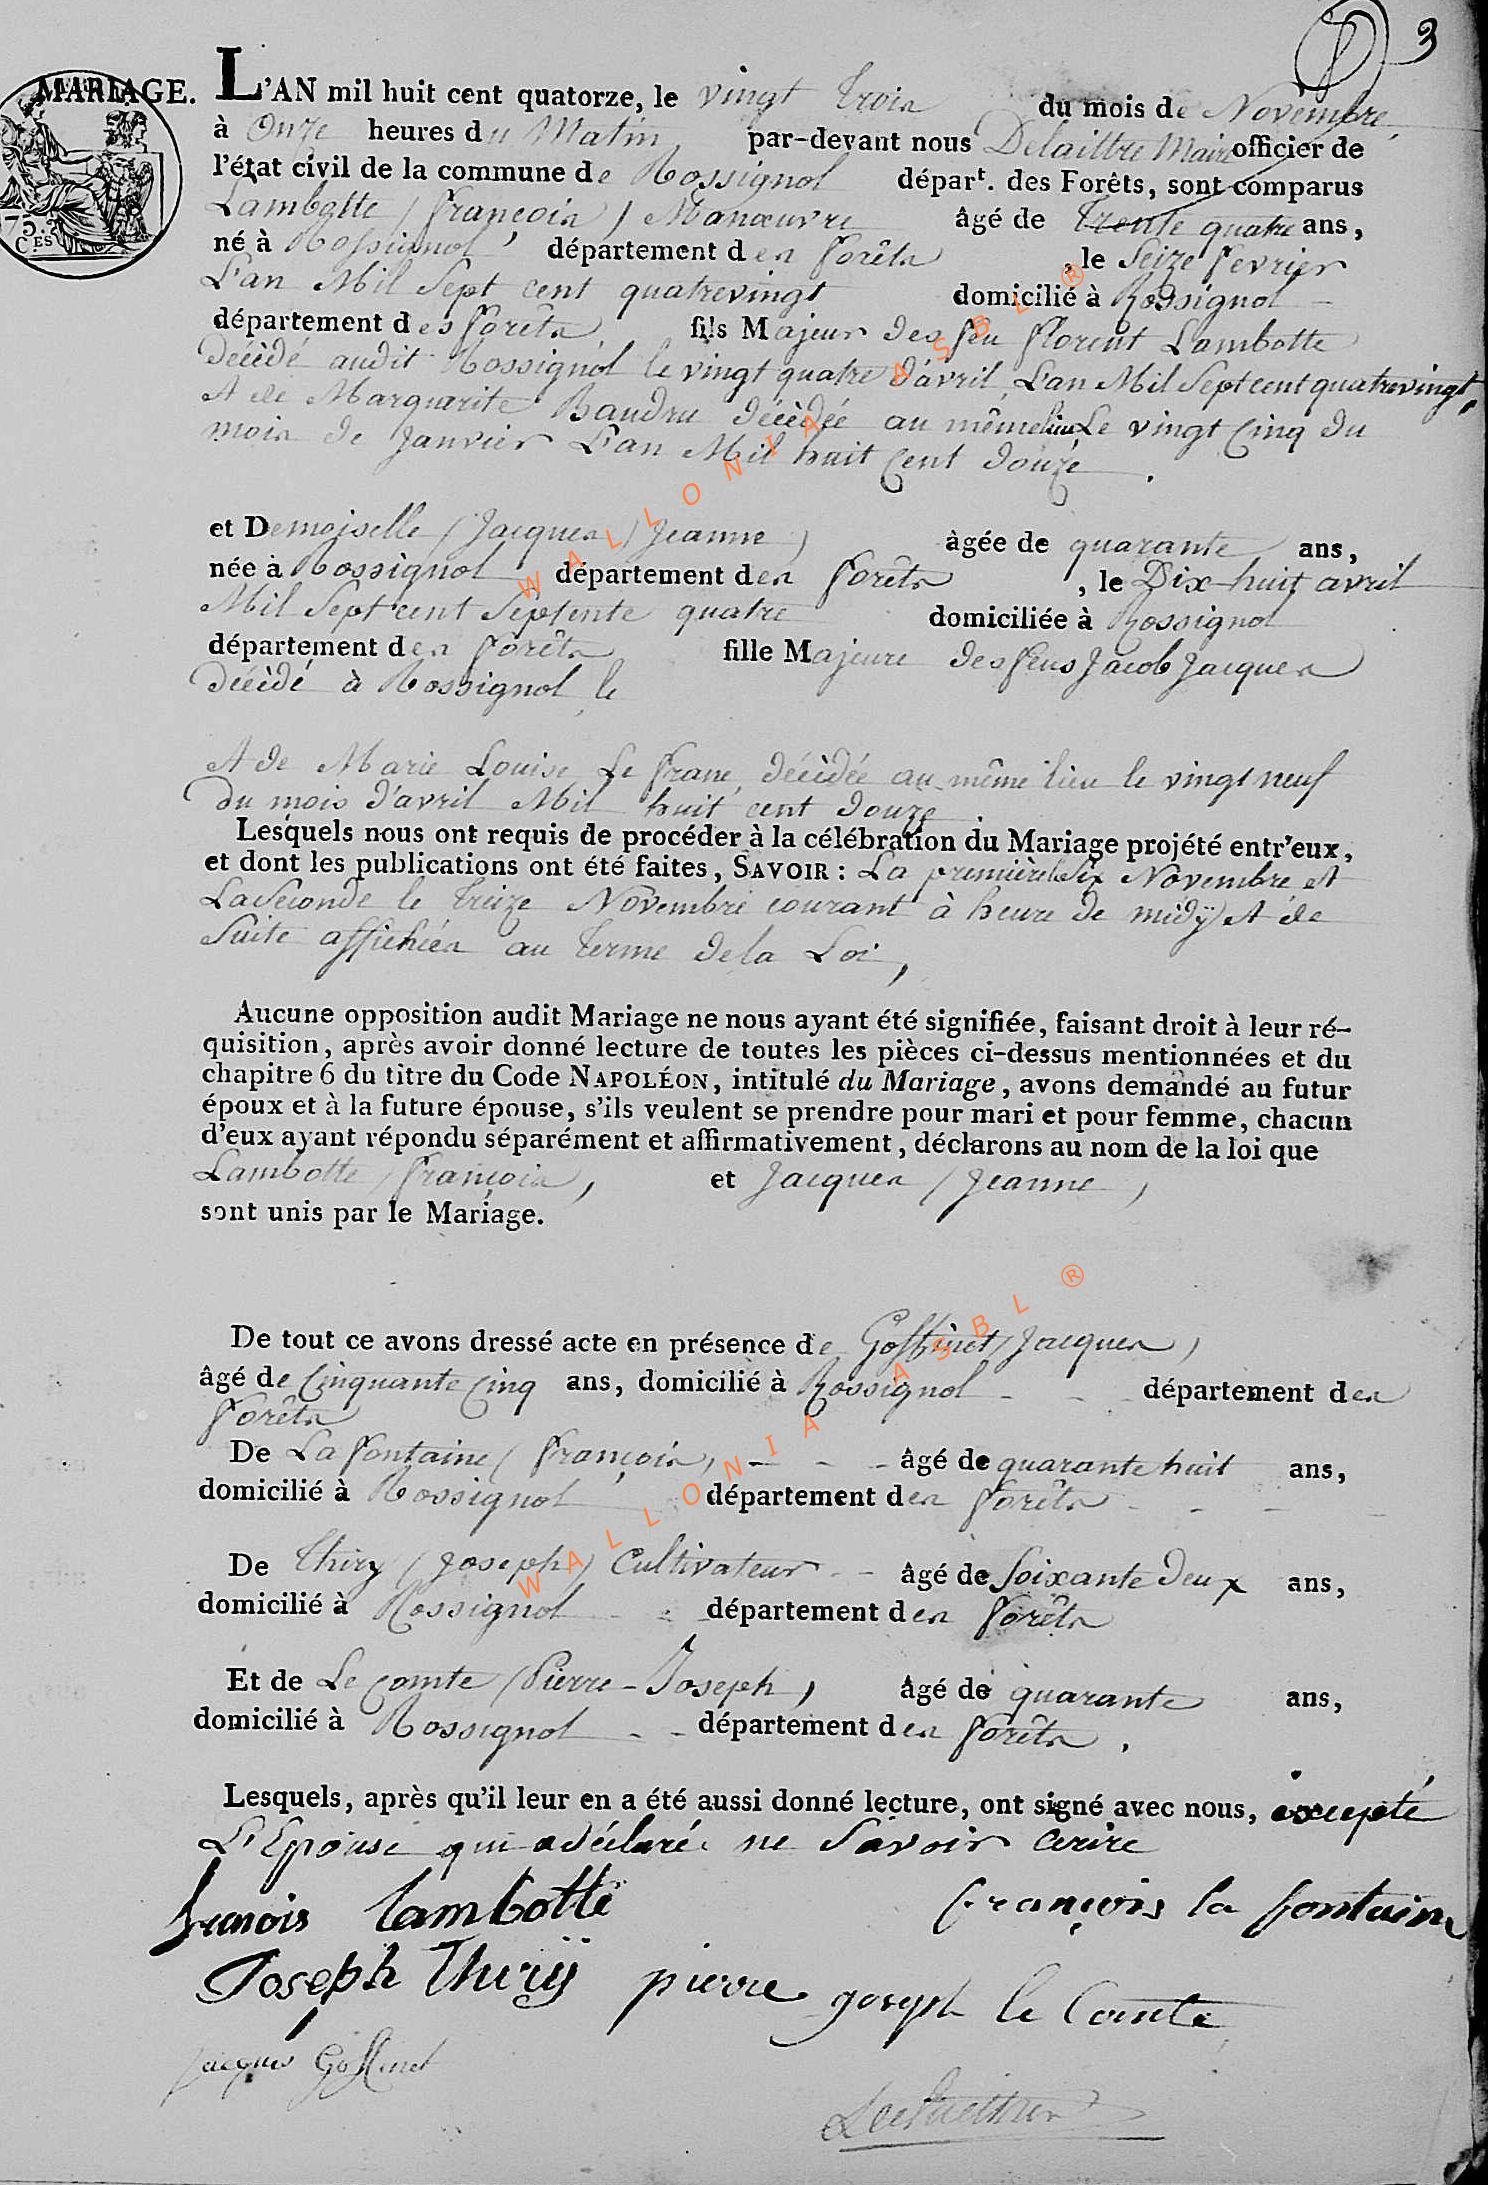 3
MARIAGE. L'AN mil huit cent quatorze, le vingt trois du mois de Novembre
à Onze heures du Matin par-devant nous Delaittre Maire officier de
l'état civil de la commune de Rossignol départ. des Forêts, sont comparus
Lambotte (françois) Manœuvre âgé de trente quatre ans,
né à Rossignol département des forêts, le Seize fevrier
L'an Mil Sept cent quatrevingt domicilié à Rossignol
département des forêts fils Majeur des feu florent Lambotte
décèdé audit Rossignol le vingt quatre d'avril L'an Mil Sept cent quatrevingt,
Et de Marguerite Baudru décèdée au même lieu Le vingt Cinq du
mois de Janvier L'an Mil huit Cent douze.
et Demoiselle (Jacques) Jeanne) àgée de quarante ans,
née à Rossignol département des forêts, le Dix-huit avril
Mil Sept cent Septente quatre domiciliée à Rossignol
département des forêts fille Majeure des feus Jacob Jacques
décèdé à Rossignol le
Et de Marie Louise Le franc décèdée au même lieu le vingt neuf
du mois d'avril Mil huit cent douze.
Lesquels nous ont requis de procéder à la célébration du Mariage projété entr'eux,
et dont les publications ont été faites, SAVOIR : La première le Six Novembre et
La Seconde le treize Novembre courant à heure de midÿ Et de
Suite affichées au terme de la Loi,
Aucune opposition audit Mariage ne nous ayant été signifiée, faisant droit à leur ré-
quisition, après avoir donné lecture de toutes les pièces ci-dessus mentionnées et du
chapitre 6 du titre du Code NAPOLÉON, intitulé du Mariage, avons demandé au futur
époux et à la future épouse, s'ils veulent se prendre pour mari et pour femme, chacun
d'eux ayant répondu séparément et affirmativement, déclarons au nom de la loi que
Lambotte (françois, et Jacques (Jeanne)
sont unis par le Mariage.
De tout ce avons dressé acte en présence de Goffinet (Jacques)
âgé de Cinquante Cinq ans, domicilié à Rossignol département des
forêts
De La fontaine (françois, âgé de quarante huit ans,
domicilié à Rossignol département des forêts
De Thiry (Joseph) Cultivateur âgé de Soixante Deux ans,
domicilié à Rossignol département des forêts
Et de Le Comte (Pierre-Joseph, âgé de quarante ans,
domicilié à Rossignol département des forêts.
Lesquels, après qu'il leur en a été aussi donné lecture, ont signé avec nous, excepté
L'Epouse qui a déclaré ne Savoir écrire
franois lambotte françois la fontaine
Joseph Thirÿ pierre joseph le Comte
jacques Goffinet
Delaittre
75 CES
WALLONIA ASBL ®
WALLONIA ASBL ®